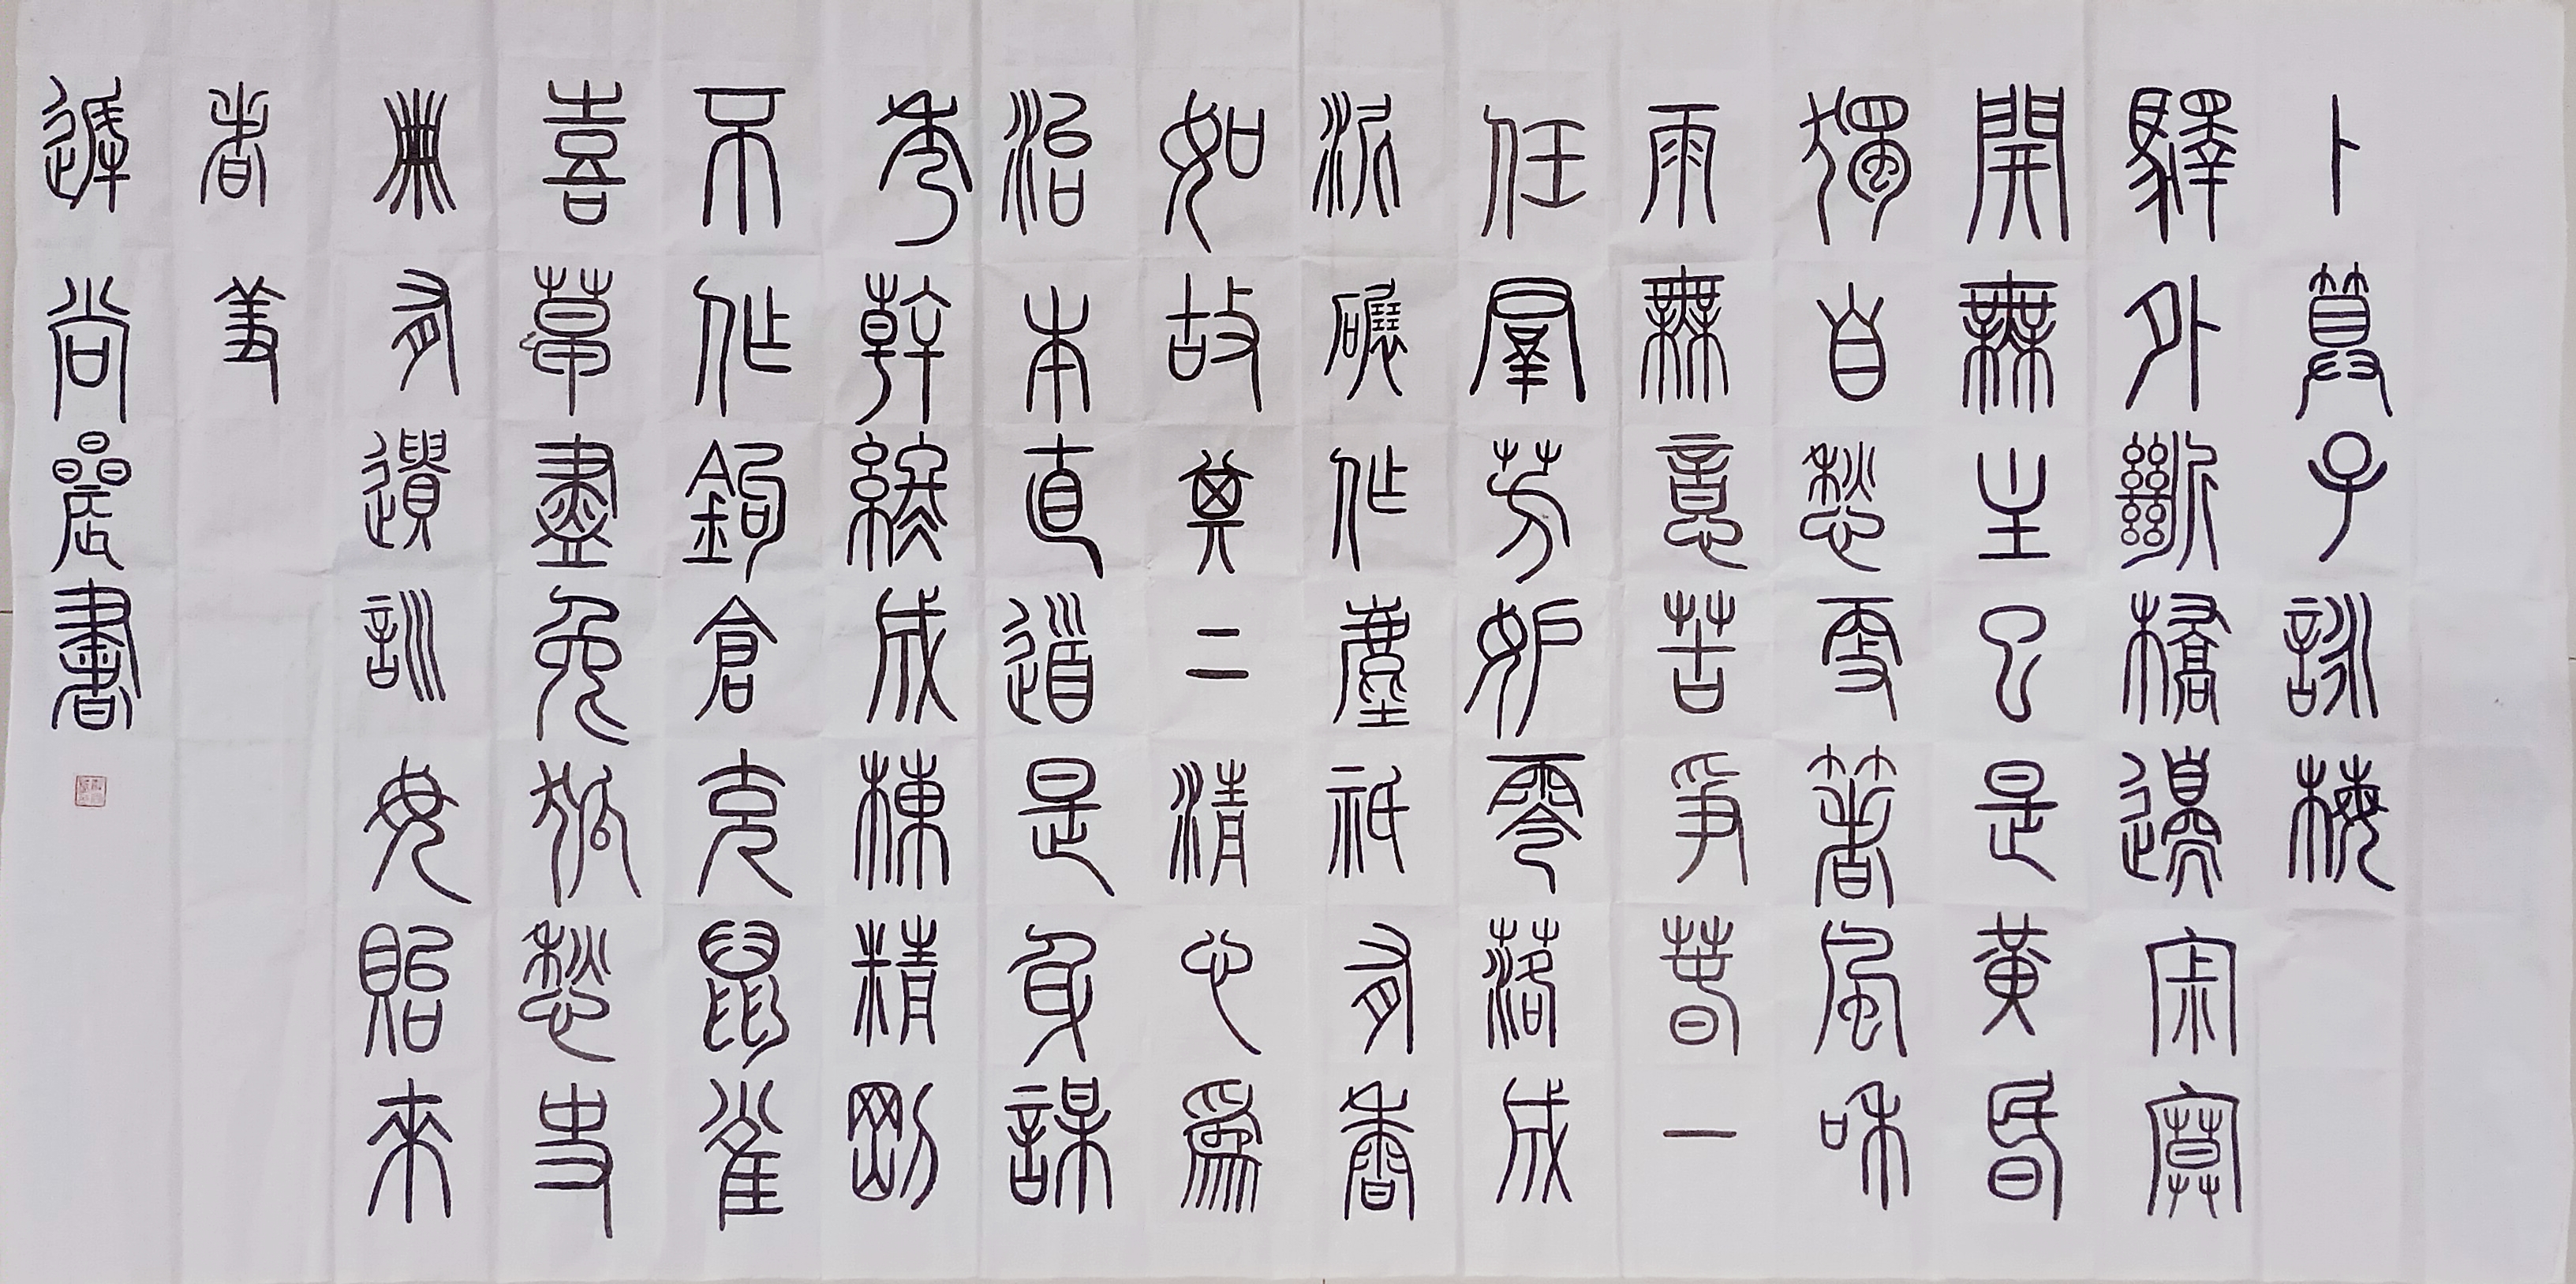 卜算子詠梅
驛外斷橋邊寂寞
開無主已是黃昏
獨自愁更著風和
雨無意苦爭春一
任羣芳妒零落成
泥碾作塵祇有香
如故其二清心為
治本直道是身謀
秀幹終成棟精剛
不作鉤倉充鼠雀
喜草盡兔狐愁史
冊有遺訓毋貽來
者羞
尚晨書